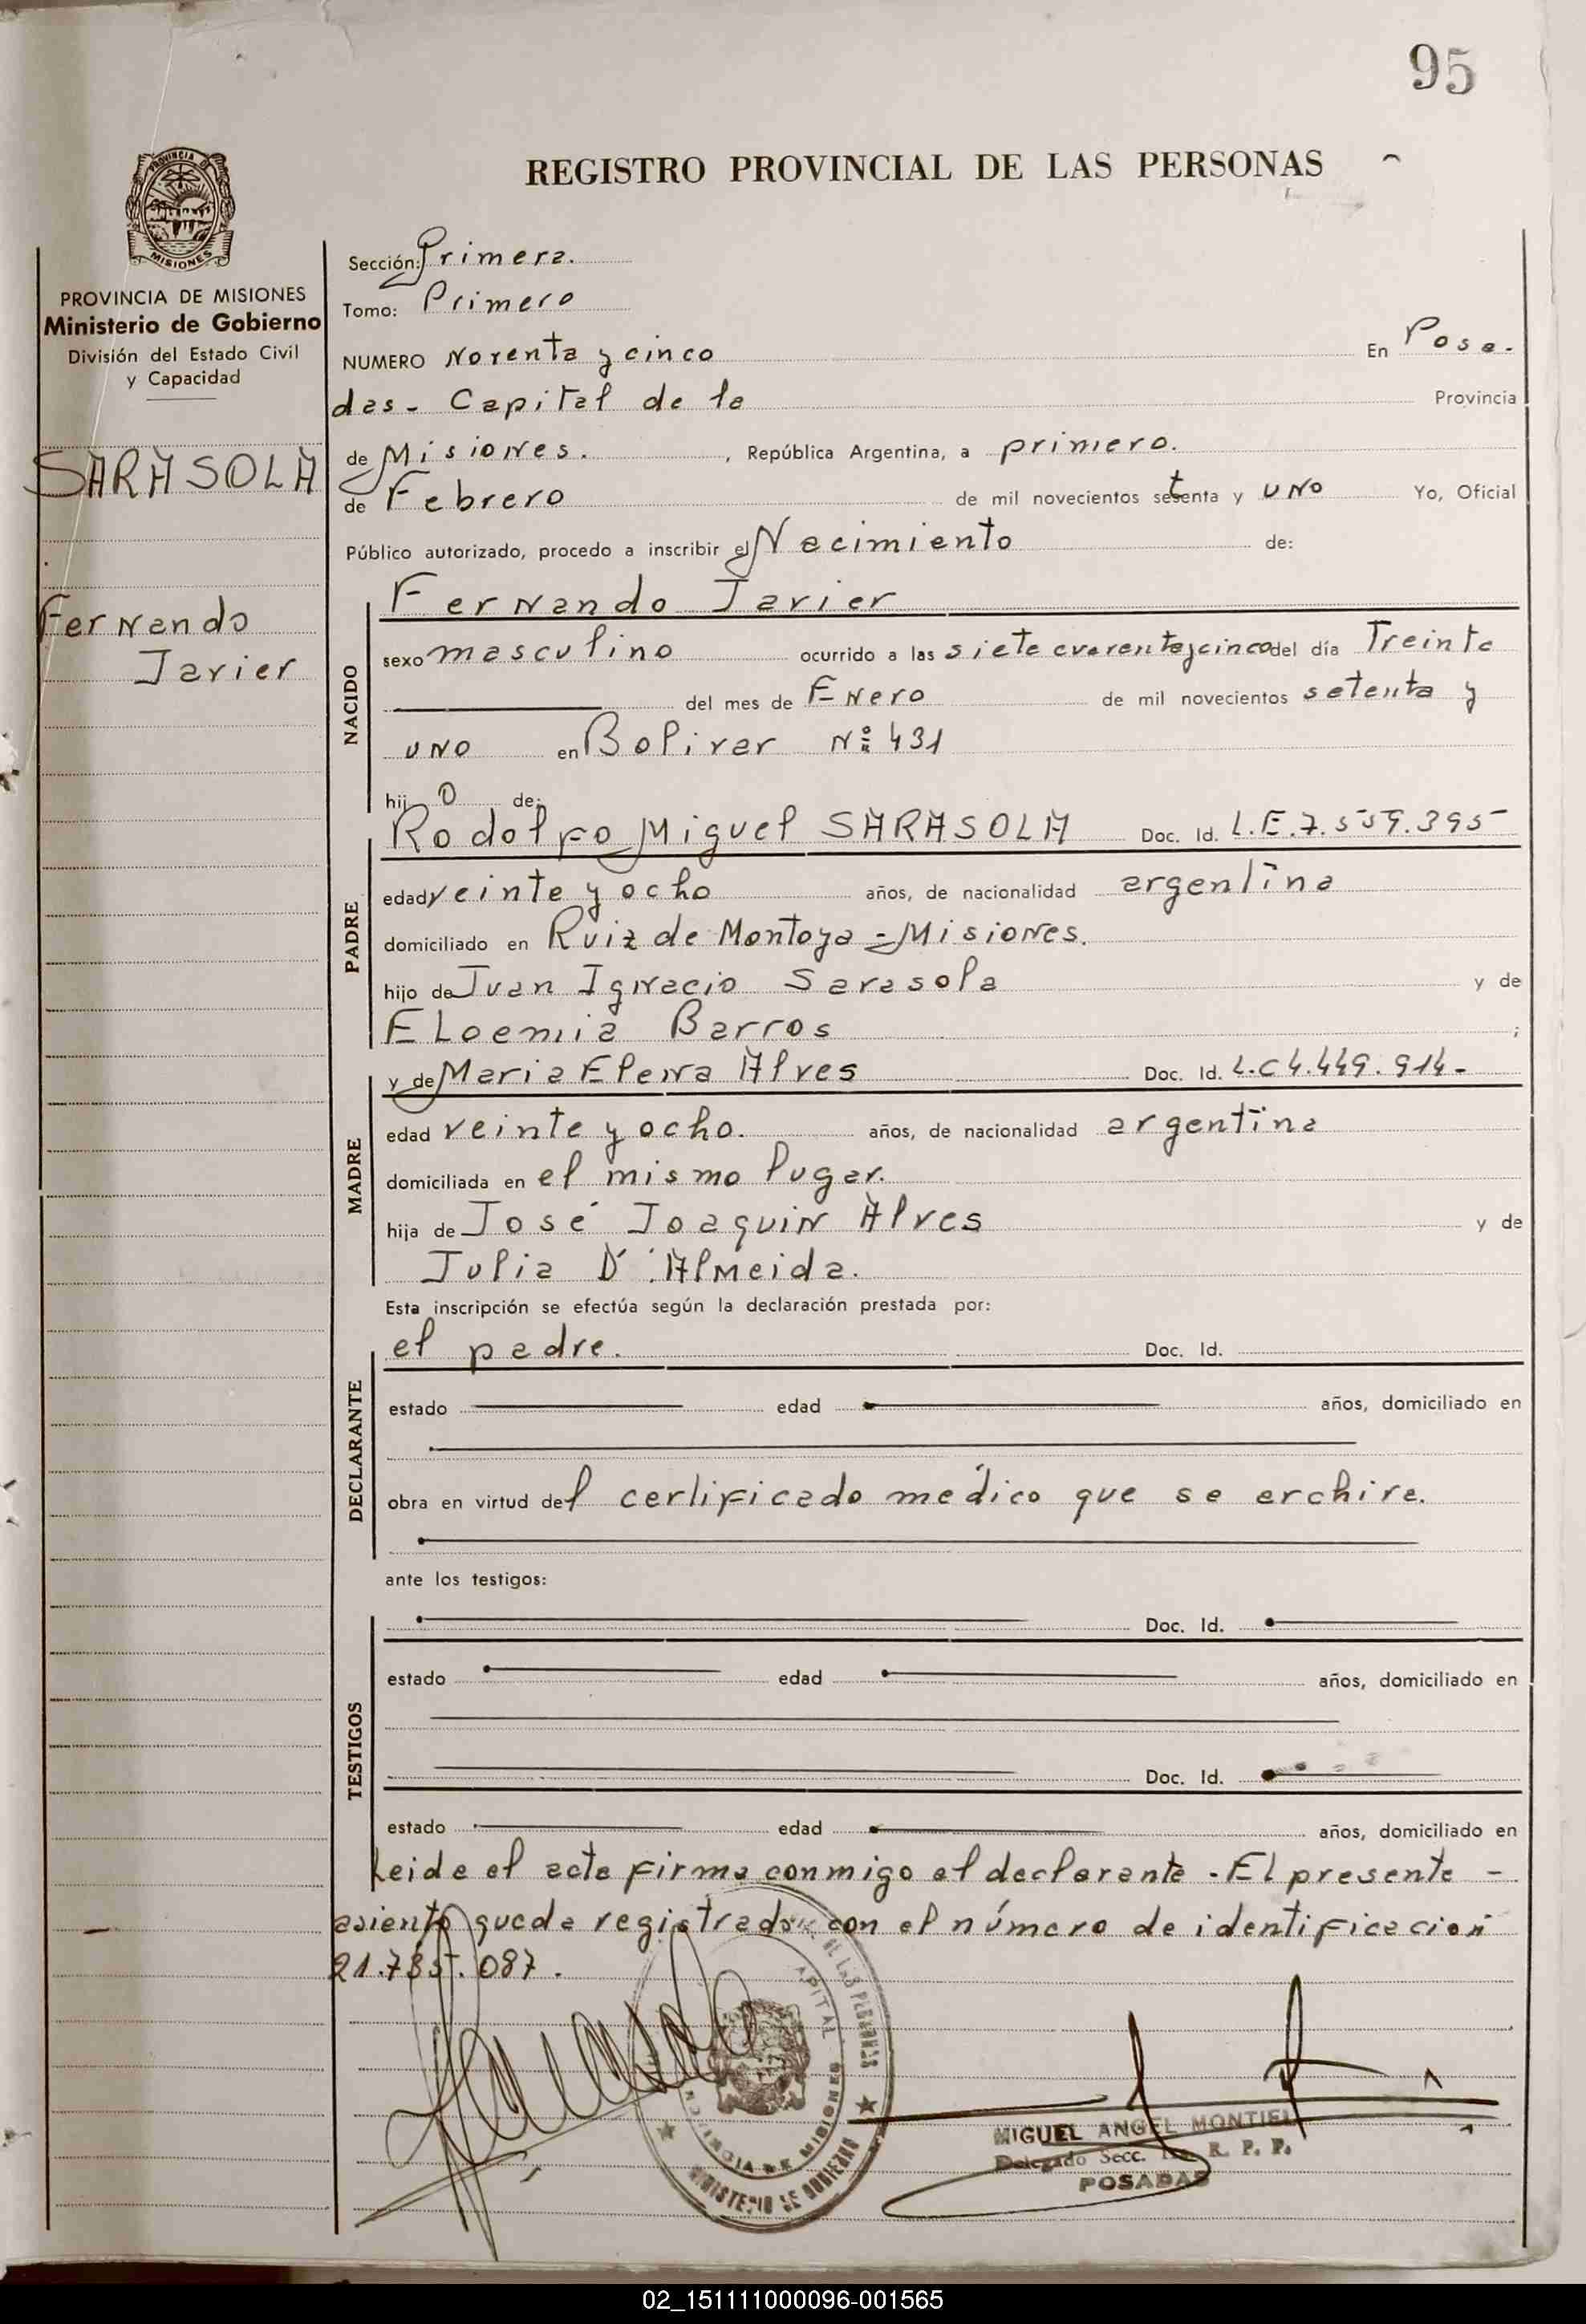 95
REGISTRO PROVINCIAL DE LAS PERSONAS
PROVINCIA DE
MISIONES
PROVINCIA DE MISIONES
Ministerio de Gobierno
División del Estado Civil
y Capacidad
SARASOLA
Fernando
Javier
Sección: Primera.
Tomo: Primero
NUMERO Noventa y cinco En Posa-
das - Capital de la Provincia
de Misiones. , República Argentina, a primero.
de Febrero de mil novecientos setenta y uno Yo, Oficial
Público autorizado, procedo a inscribir el Nacimiento de:
NACIDO
Fernando Javier
sexo masculino ocurrido a las siete cuarenta y cinco del día Treinta
del mes de Enero de mil novecientos setenta y
uno en Bolivar Nº 431
hij o de:
PADRE
Rodolfo Miguel SARASOLA Doc. Id. L.E. 7.559.395
edad veinte y ocho años, de nacionalidad argentina
domiciliado en Ruiz de Montoya - Misiones.
hijo de Juan Ignacio Sarasola y de
Eloemia Barros ;
MADRE
y de Maria Elena Alves Doc. Id. L.C 4.449.914-
edad veinte y ocho. años, de nacionalidad argentina
domiciliada en el mismo lugar.
hija de José Joaquin Alves y de
Julia D'Almeida.
Esta inscripción se efectúa según la declaración prestada por:
DECLARANTE
el padre. Doc. Id.
estado edad años, domiciliado en
obra en virtud del certificado médico que se archiva.
ante los testigos:
TESTIGOS
Doc. Id.
estado edad años, domiciliado en
Doc. Id.
estado edad años, domiciliado en
Leida el acta firma conmigo el declarante - El presente -
asiento queda registrado con el número de identificación
21.735.087.
DE LAS PERSONAS
CAPITAL
PROVINCIA DE MISIONES
MINISTERIO DE GOBIERNO
MIGUEL ANGEL MONTIEL
Delegado Secc. R. P. P.
POSADAS
02_151111000096-001565